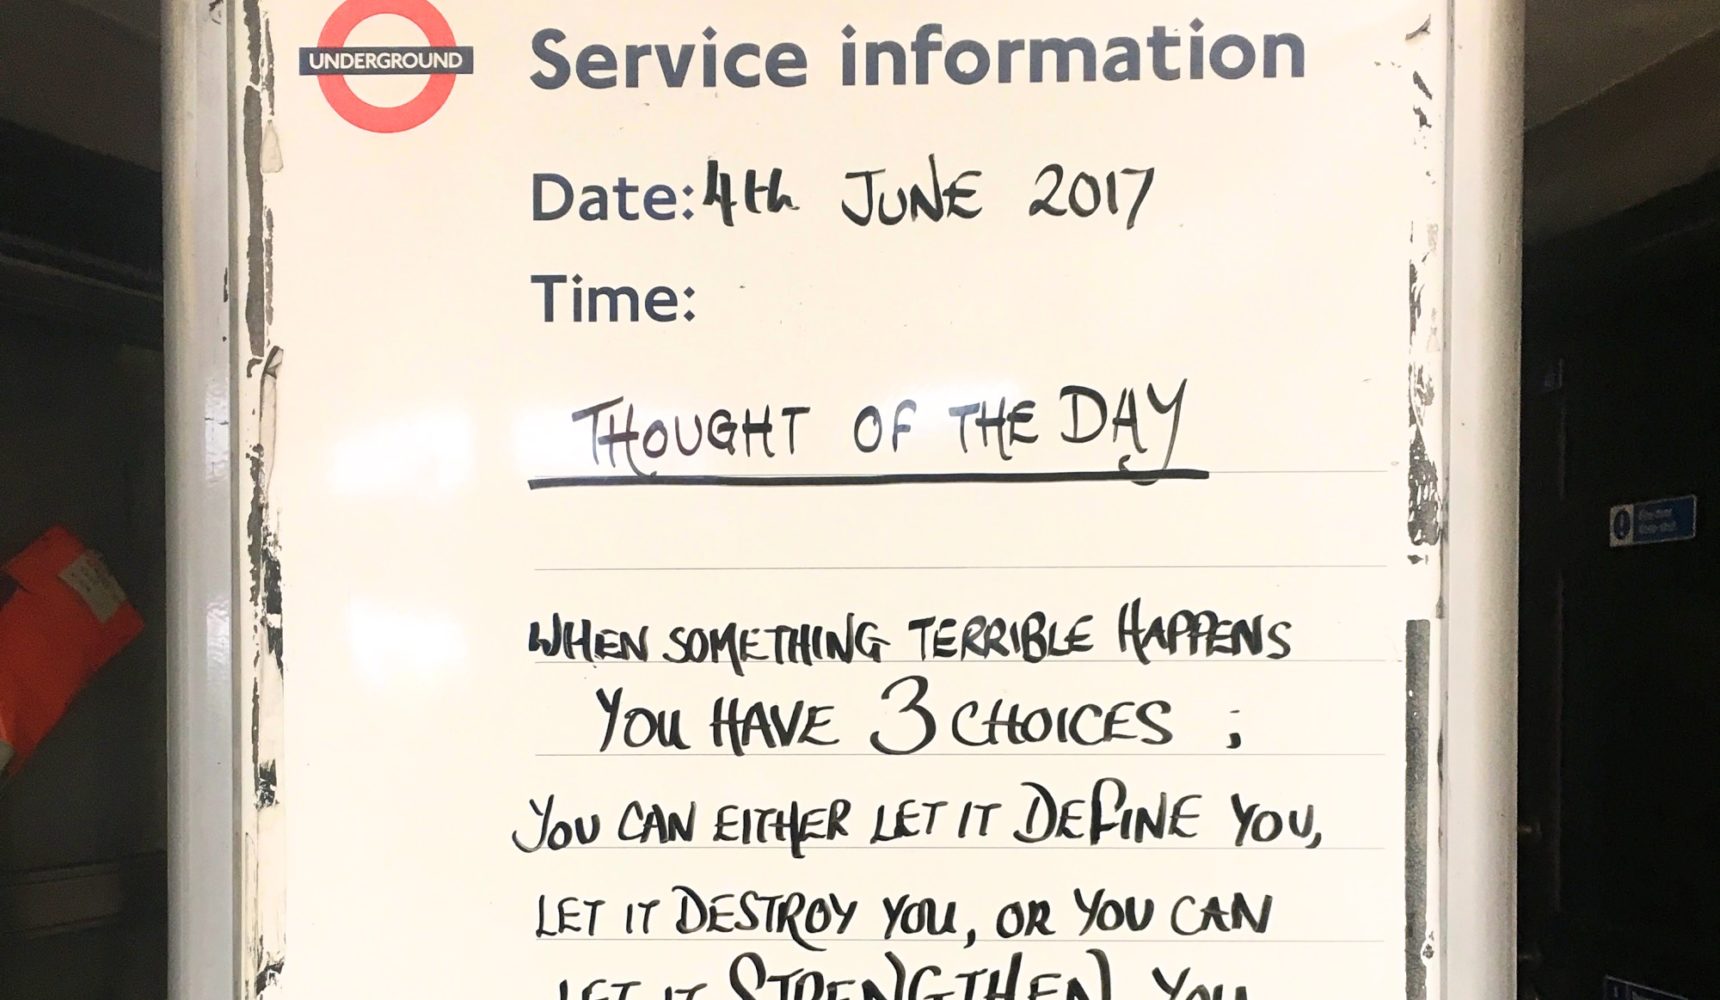 UNDERGROUND
Service information
Date: 4th JUNE 2017
Time:
THOUGHT OF THE DAY
WHEN SOMETHING TERRIBLE HAPPENS
YOU HAVE 3 CHOICES ;
YOU CAN EITHER LET IT DEFINE YOU,
LET IT DESTROY YOU, OR YOU CAN
LET IT STRENGTHEN YOU